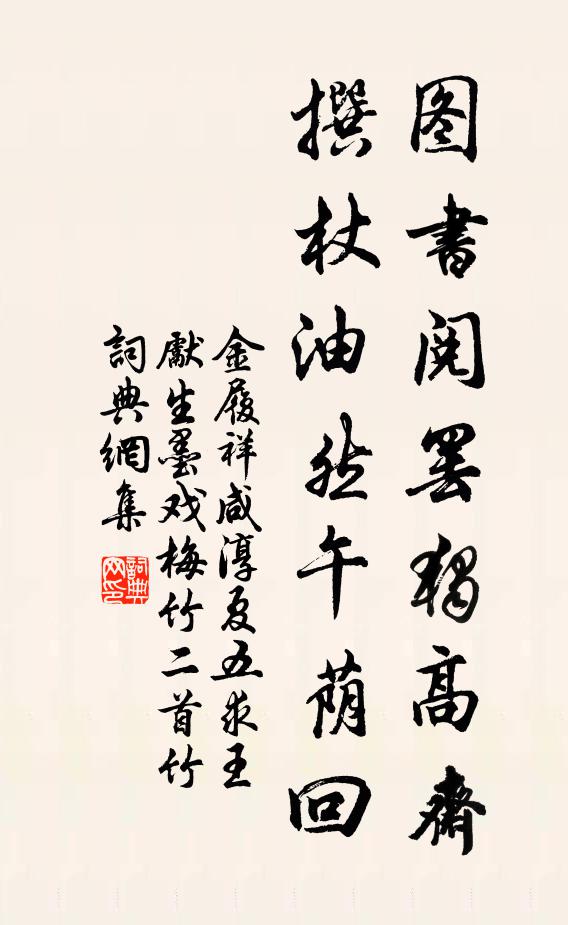 图書阅罢獨高齋
撰杖油然午荫回
金履祥咸淳夏五求王
獻生墨戏梅竹二首竹
詞典網集
詞典网印